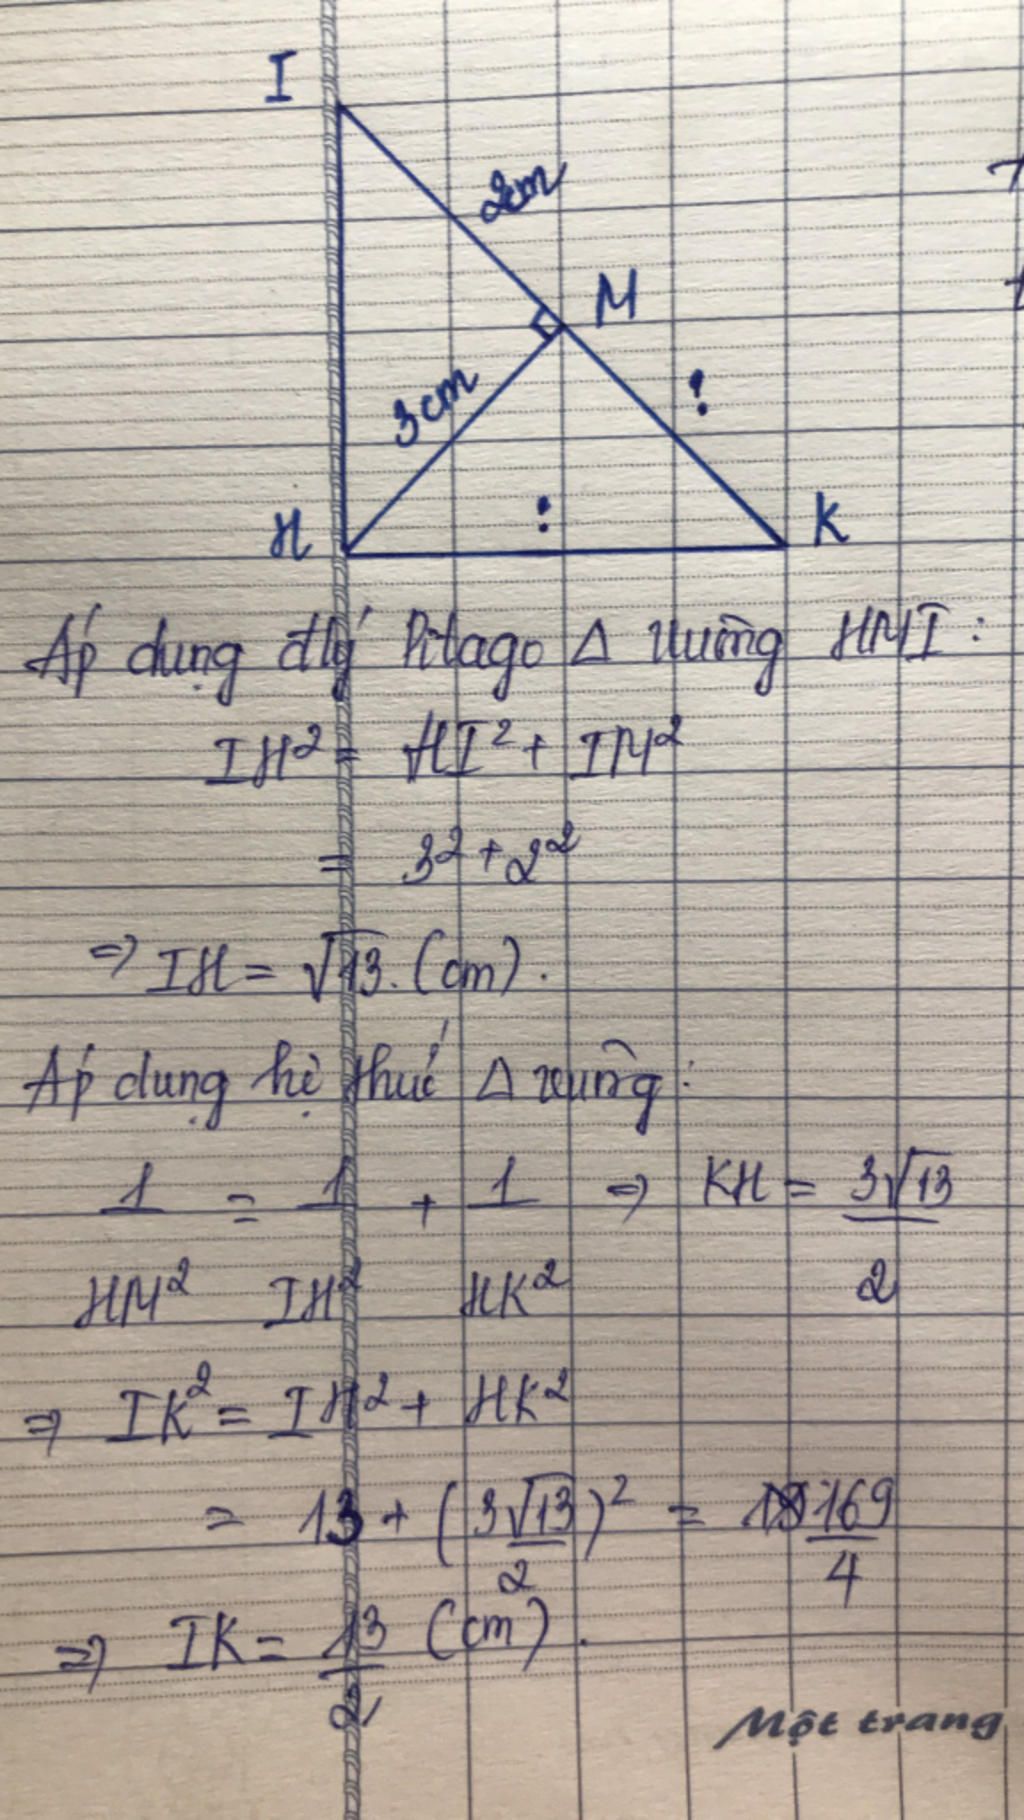 I
2cm
M
3cm
?
H
?
K
Áp dụng đlý Pitago Δ vuông HMI:
IH² = HI² + IM²
= 3² + 2²
⇒ IH = √13. (cm).
Áp dụng hệ thức Δ vuông:
1/HM² = 1/IH² + 1/HK² ⇒ KH = 3√13/2
⇒ IK² = IH² + HK²
= 13 + (3√13/2)² = 169/4
⇒ IK = 13/2 (cm).
Một trang